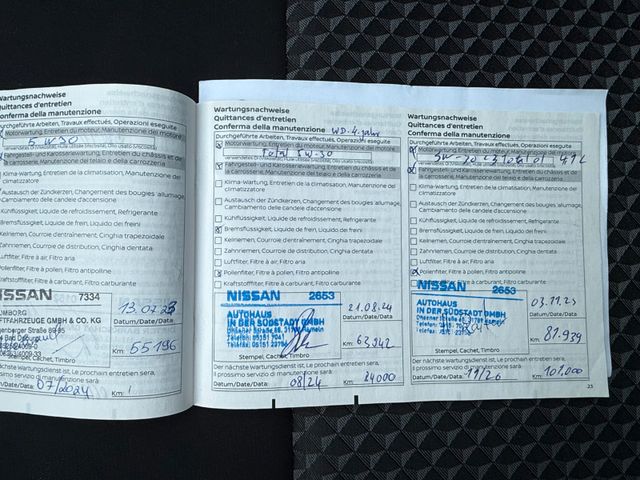 Wartungsnachweise
Quittances d'entretien
Conferma della manutenzione
Durchgeführte Arbeiten, Travaux effectués, Operazioni eseguite
Motorwartung, Entretien du moteur, Manutenzione del motore
5 W 30
Fahrgestell- und Karosseriewartung, Entretien du châssis et de
la carrosserie, Manutenzione del telaio e della carrozzeria
Klima-Wartung, Entretien de la climatisation, Manutenzione del
climatizzatore
Austausch der Zündkerzen, Changement des bougies d'allumage,
Cambiamento delle candele d'accensione
Kühlflüssigkeit, Liquide de refroidissement, Refrigerante
Bremsflüssigkeit, Liquide de frein, Liquido dei freni
Keilriemen, Courroie d'entraînement, Cinghia trapezoidale
Zahnriemen, Courroie de distribution, Cinghia dentata
Luftfilter, Filtre à air, Filtro aria
Pollenfilter, Filtre à pollen, Filtro antipolline
Kraftstofffilter, Filtre à carburant, Filtro carburante
NISSAN 7334
FTFAHRZEUGE GMBH & CO. KG
13.07.23
Datum/Date/Data
Km: 55196
Stempel, Cachet, Timbro
Der nächste Wartungsdienst ist, Le prochain entretien sera,
Il prossimo servizio di manutenzione sarà
Datum/Date/Data: 07/2024 Km:
Wartungsnachweise
Quittances d'entretien
Conferma della manutenzione WD-4. Jahre
Durchgeführte Arbeiten, Travaux effectués, Operazioni eseguite
Motorwartung, Entretien du moteur, Manutenzione del motore
Total 5W-30
Fahrgestell- und Karosseriewartung, Entretien du châssis et de
la carrosserie, Manutenzione del telaio e della carrozzeria
Klima-Wartung, Entretien de la climatisation, Manutenzione del
climatizzatore
Austausch der Zündkerzen, Changement des bougies d'allumage,
Cambiamento delle candele d'accensione
Kühlflüssigkeit, Liquide de refroidissement, Refrigerante
Bremsflüssigkeit, Liquide de frein, Liquido dei freni
Keilriemen, Courroie d'entraînement, Cinghia trapezoidale
Zahnriemen, Courroie de distribution, Cinghia dentata
Luftfilter, Filtre à air, Filtro aria
Pollenfilter, Filtre à pollen, Filtro antipolline
Kraftstofffilter, Filtre à carburant, Filtro carburante
NISSAN 2653
AUTOHAUS
IN DER SÜDSTADT GMBH
21.08.24
Datum/Date/Data
Km: 63.942
Stempel, Cachet, Timbro
Der nächste Wartungsdienst ist, Le prochain entretien sera,
Il prossimo servizio di manutenzione sarà
Datum/Date/Data: 08/24 Km: 24000
Wartungsnachweise
Quittances d'entretien
Conferma della manutenzione
Durchgeführte Arbeiten, Travaux effectués, Operazioni eseguite
Motorwartung, Entretien du moteur, Manutenzione del motore
5W-20 Total 4,1 L
Fahrgestell- und Karosseriewartung, Entretien du châssis et de
la carrosserie, Manutenzione del telaio e della carrozzeria
Klima-Wartung, Entretien de la climatisation, Manutenzione del
climatizzatore
Austausch der Zündkerzen, Changement des bougies d'allumage,
Cambiamento delle candele d'accensione
Kühlflüssigkeit, Liquide de refroidissement, Refrigerante
Bremsflüssigkeit, Liquide de frein, Liquido dei freni
Keilriemen, Courroie d'entraînement, Cinghia trapezoidale
Zahnriemen, Courroie de distribution, Cinghia dentata
Luftfilter, Filtre à air, Filtro aria
Pollenfilter, Filtre à pollen, Filtro antipolline
Kraftstofffilter, Filtre à carburant, Filtro carburante
NISSAN 2653
AUTOHAUS
IN DER SÜDSTADT GMBH
03.11.25
Datum/Date/Data
Km: 81.939
Stempel, Cachet, Timbro
Der nächste Wartungsdienst ist, Le prochain entretien sera,
Il prossimo servizio di manutenzione sarà
Datum/Date/Data: 11/26 Km: 101.000
23